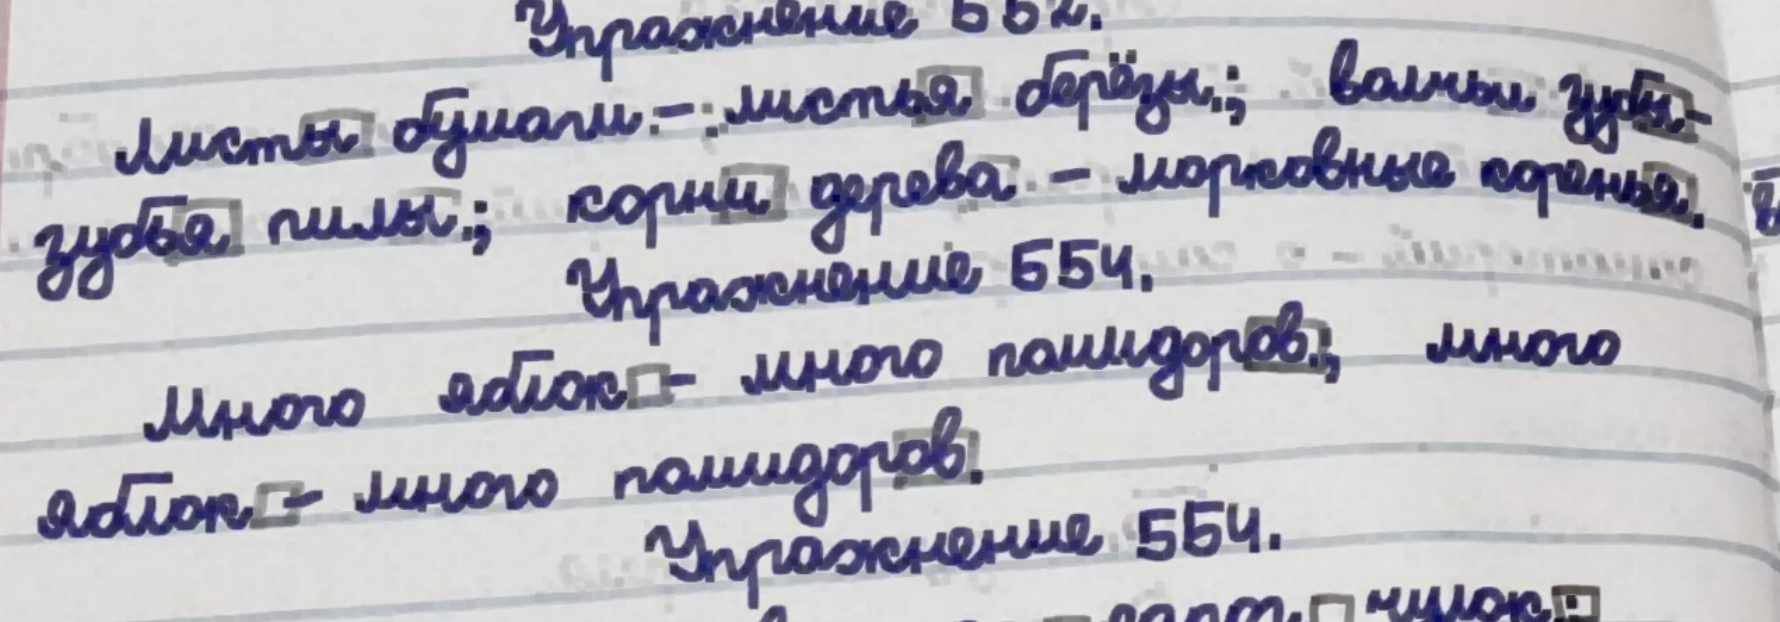 Упражнение 552.
Листы бумаги - листья берёзы; волчьи зубы-
зубья пилы; корни дерева - морковные коренья.
Упражнение 554.
Много яблок - много помидоров; много
яблок - много помидоров.
Упражнение 554.
чулок